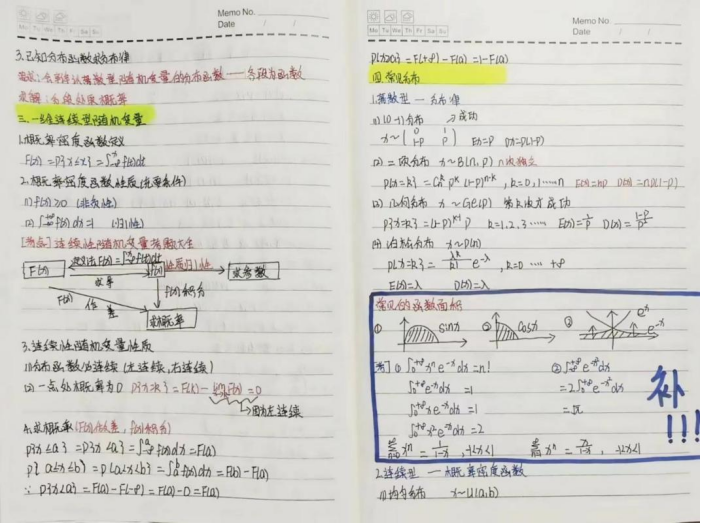 Memo No.
Date / /
Mo Tu We Th Fr Sa Su
3.已知分布函数求分布律
三.一维连续型随机变量
1.概率密度函数定义
F(x)=P{X≤x}=∫_{-∞}^{x}f(t)dt
2.概率密度函数性质(充要条件)
(1) f(x)≥0 (非负性)
(2) ∫_{-∞}^{+∞}f(x)dx=1 (归一性)
[考点]连续性随机变量
F(x) f(x) 性质归一性 求参数
求导
F(x) 作差 f(x)积分
求概率
3.连续性随机变量性质
(1)分布函数必连续(左连续,右连续)
(2)一点处概率为0 =0
因为左连续
4.求概率(F(x)作差,f(x)积分)
P{X≤a}=P{X<a}=∫_{-∞}^{a}f(x)dx=F(a)
P{a≤X≤b}=P{a<X<b}=∫_{a}^{b}f(x)dx=F(b)-F(a)
∵ P{X≤a}=F(a)-F(-∞)=F(a)-0=F(a)
Memo No.
Date / /
Mo Tu We Th Fr Sa Su
=F(+∞)-F(a)=1-F(a)
四.常见分布
1.离散型 — 分布律
(1)(0-1)分布 →成功
X~(0 1
1-P P) EX=P DX=P(1-P)
(2)二项分布 X~B(n,p) n次独立
P{X=k}=C_n^k p^k (1-p)^{n-k}, k=0,1……n E(X)=np D(X)=np(1-p)
(3)几何分布 X~Ge(p) 第k次才成功
P{X=k}=(1-p)^{k-1}p k=1,2,3…… E(X)=1/p D(X)=(1-p)/p²
(4)泊松分布 X~P(λ)
P{X=k}=λ^k/k! e^{-λ}, k=0……+∞
E(X)=λ D(X)=λ
常见的函数面积
① sinx ② cosx ③ e^x e^{-x}
① ∫_0^{+∞}x^n e^{-x}dx=n! ② ∫_{-∞}^{+∞}e^{-x²}dx
∫_0^{+∞}e^{-x}dx=1 =2∫_0^{+∞}e^{-x²}dx
∫_0^{+∞}xe^{-x}dx=1 =√π
∫_0^{+∞}x²e^{-x}dx=2
补!!!
x^n=1/(1-x), -1<x<1
2.连续型 — 概率密度函数
(1)均匀分布 X~U(a,b)